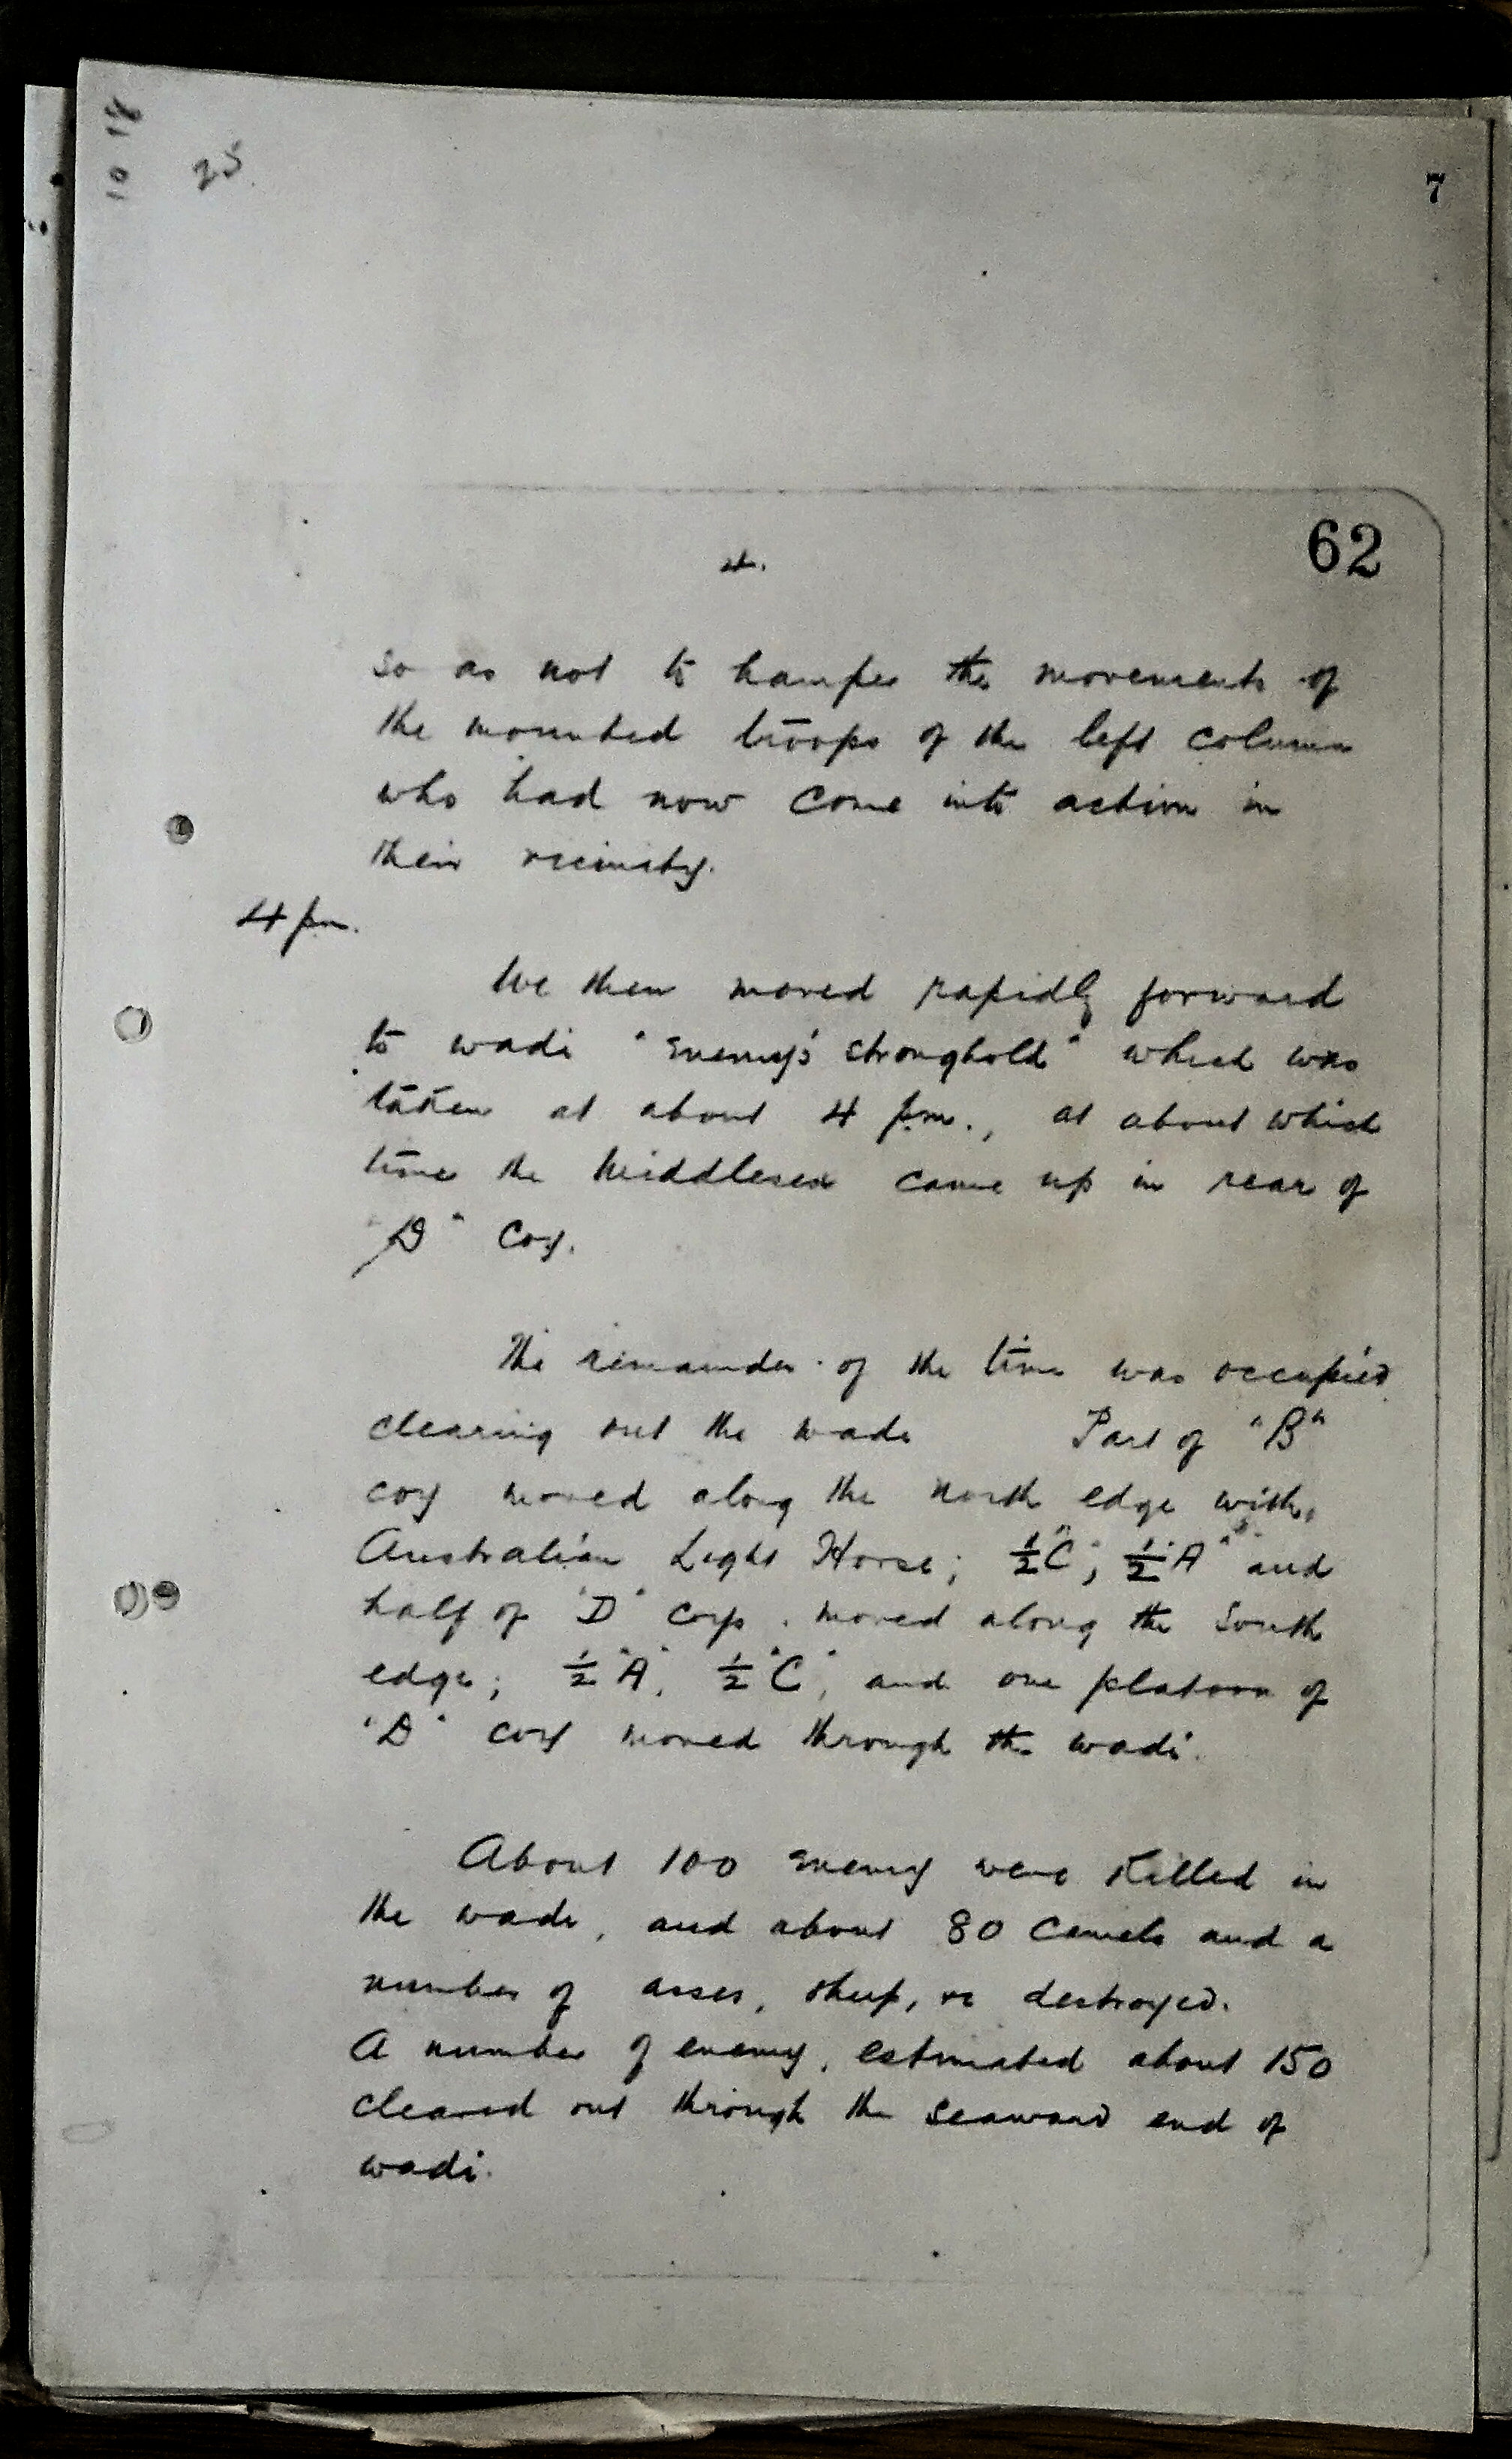 10 18
25
7
62
4.
so as not to hamper the movements of
the mounted troops of the left column
who had now come into action in
their vicinity.
4 pm.
We then moved rapidly forward
to wadi "Enemy's stronghold" which was
taken at about 4 pm., at about which
time the Middlesex came up in rear of
"D" Coy.
The remainder of the time was occupied
clearing out the wadi Part of "B"
coy moved along the north edge with
Australian Light Horse; ½ "C"; ½ "A" and
half of "D" coys. moved along the South
edge; ½ "A", ½ "C", and one platoon of
"D" coy moved through the wadi.
About 100 enemy were killed in
the wadi, and about 80 Camels and a
number of asses, sheep, destroyed.
A number of enemy, estimated about 150
cleared out through the seaward end of
wadi.